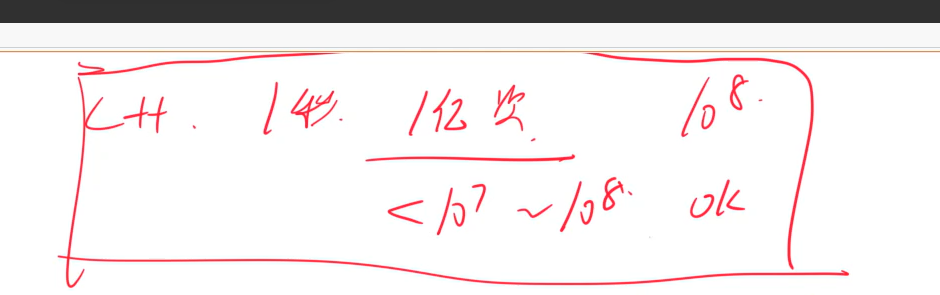 C++. 1秒. 1亿次. 10⁸.
<10⁷ ~ 10⁸. OK